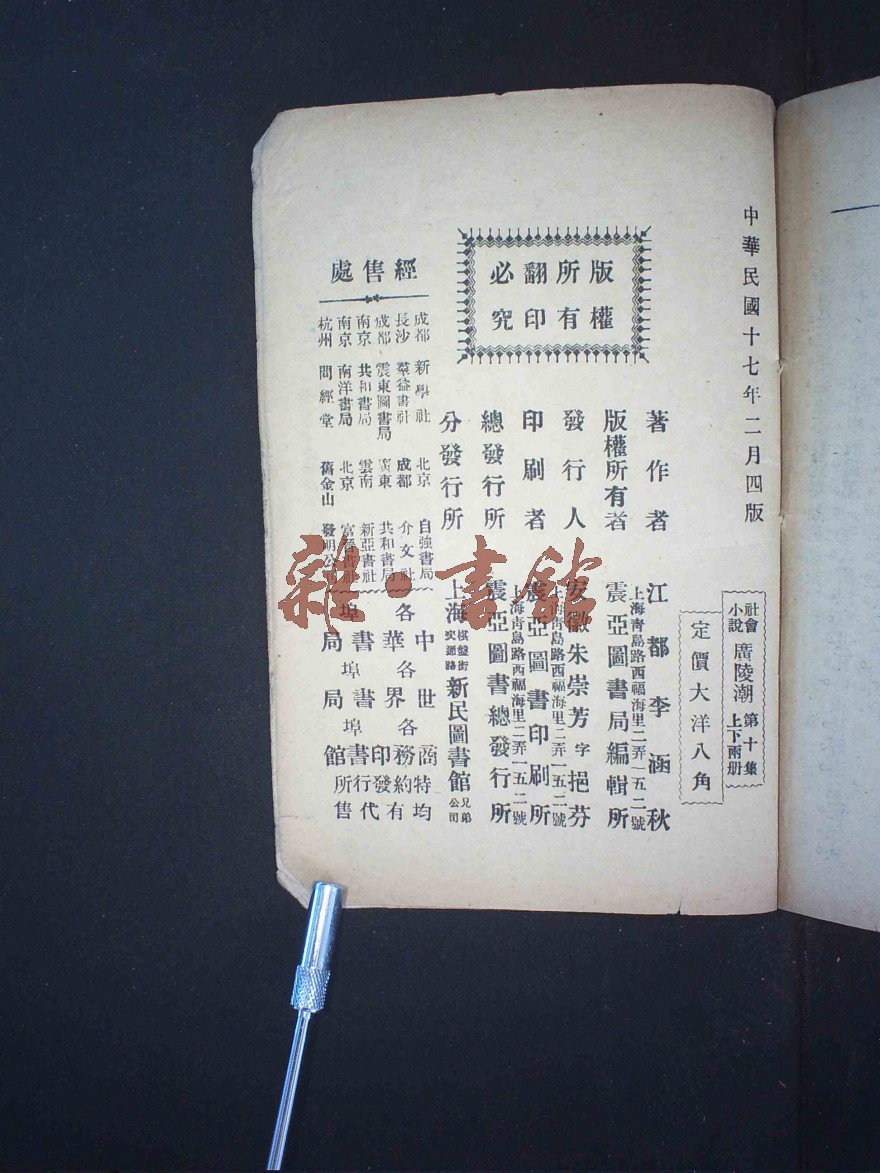 中華民國十七年二月四版
社會小說 廣陵潮 第十集 上下兩册
定價大洋八角
版權所有
翻印必究
著作者 江都李涵秋
上海靑島路西福海里二弄一五二號
版權所有者 震亞圖書局編輯所
發行人 安徽朱崇芳字挹芬
上海靑島路西福海里二弄一五二號
印刷者 震亞圖書印刷所
上海靑島路西福海里二弄一五二號
總發行所 震亞圖書總發行所
分發行所 上海 棋盤街交通路 新民圖書館 兄弟公司
經售處
成都 新學社 北京 自強書局
長沙 羣益書社 成都 介文社
成都 震東圖書局 廣東 共和書局
南京 共和書局 雲南 新亞書社
南京 南洋書局 北京 富晉書社
杭州 問經堂 舊金山 發明公司
中世商特均
各華各界各務約有
書書印發代
埠埠埠書行
局局館所售
雜·書館